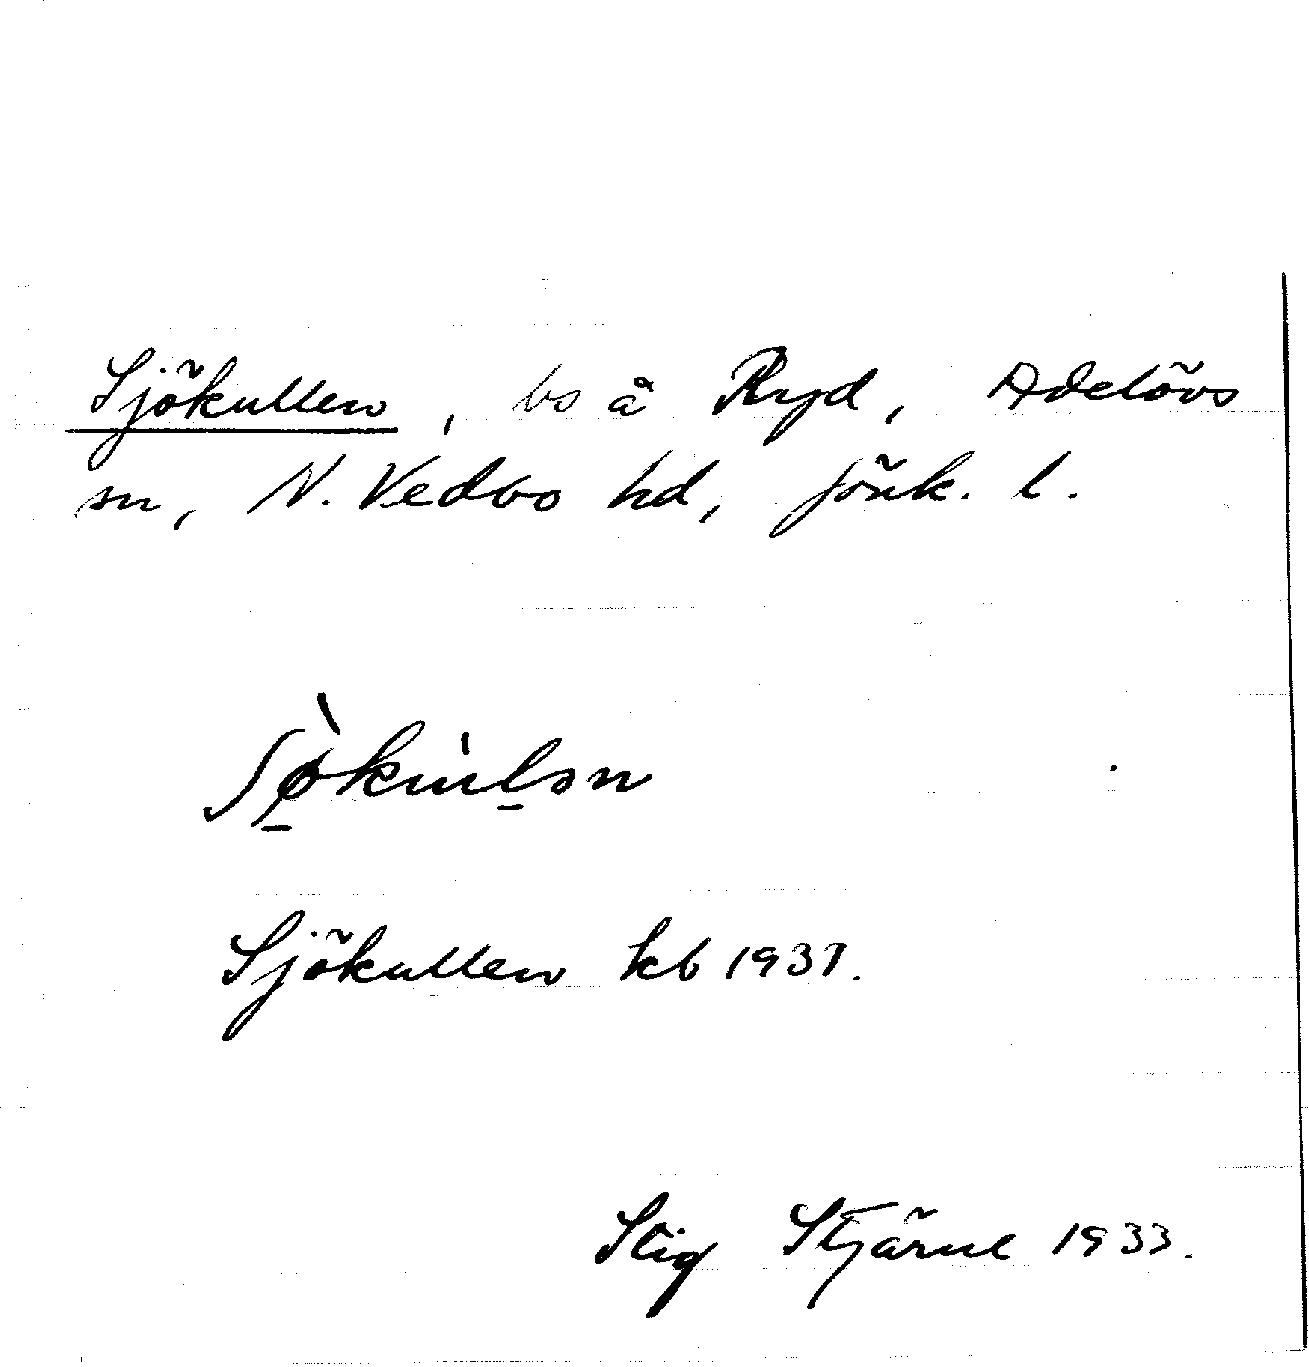 Sjökullen, bs å Ryd, Adelövs
sn, N. Vedbo hd, Jönk. l.
Sjökullen kb 1931.
Stig Stjärne 1933.